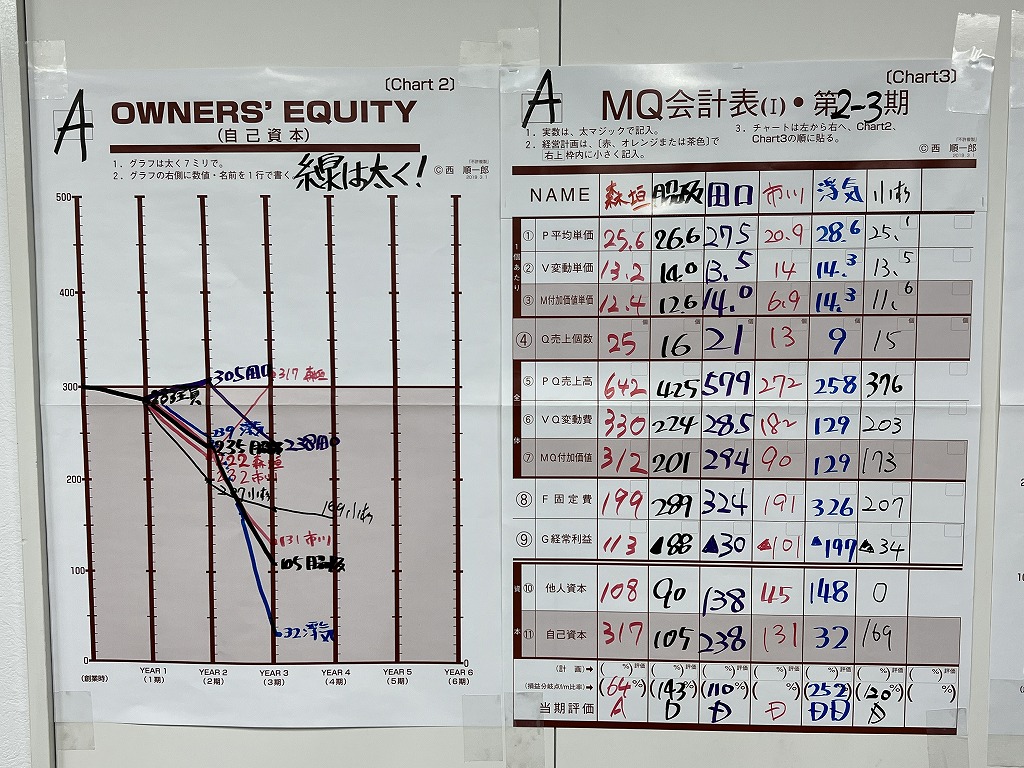 〔Chart 2〕
A
OWNERS' EQUITY
(自己資本)
1．グラフは太く7ミリで。
2．グラフの右側に数値・名前を1行で書く
線は太く!
© 西 順一郎
500
400
300
200
100
0
0
305田口
317 森垣
239 浮気
235
238田口
222 森垣
232 市川
小杉
169小杉
131 市川
105脇阪
32浮気
(創業時)
YEAR 1 YEAR 2 YEAR 3 YEAR 4 YEAR 5 YEAR 6
(1期) (2期) (3期) (4期) (5期) (6期)
〔Chart3〕
A
MQ会計表(I)・第2-3期
1．実数は、太マジックで記入。
2．経営計画は、〔赤、オレンジまたは茶色〕で
右上枠内に小さく記入。
3．チャートは左から右へ、Chart2、
Chart3の順に貼る。
© 西 順一郎
NAME 森垣 脇阪 田口 市川 浮気 小杉
1個あたり
① P平均単価 25.6 26.6 275 20.9 28.6 25.1
② V変動単価 13.2 14.0 13.5 14 14.3 13.5
③ M付加価値単価 12.4 12.6 14.0 6.9 14.3 11.6
④ Q売上個数 25 16 21 13 9 15
全体
⑤ PQ売上高 642 425 579 272 258 376
⑥ VQ変動費 330 224 285 182 129 203
⑦ MQ付加価値 312 201 294 90 129 173
⑧ F固定費 199 289 324 191 326 207
⑨ G経常利益 113 ▲88 ▲30 ▲101 ▲197 ▲34
資本
⑩ 他人資本 108 90 138 45 148 0
⑪ 自己資本 317 105 238 131 32 169
(計画)➡ ( %)評価 ( %)評価 ( %)評価 ( %)評価 ( %)評価 ( %)評価 ( %)評価
(損益分岐点f/m比率)➡ (64%) (143%) (110%) ( %) (252%) (120%) ( %)
当期評価 A D D D DD D